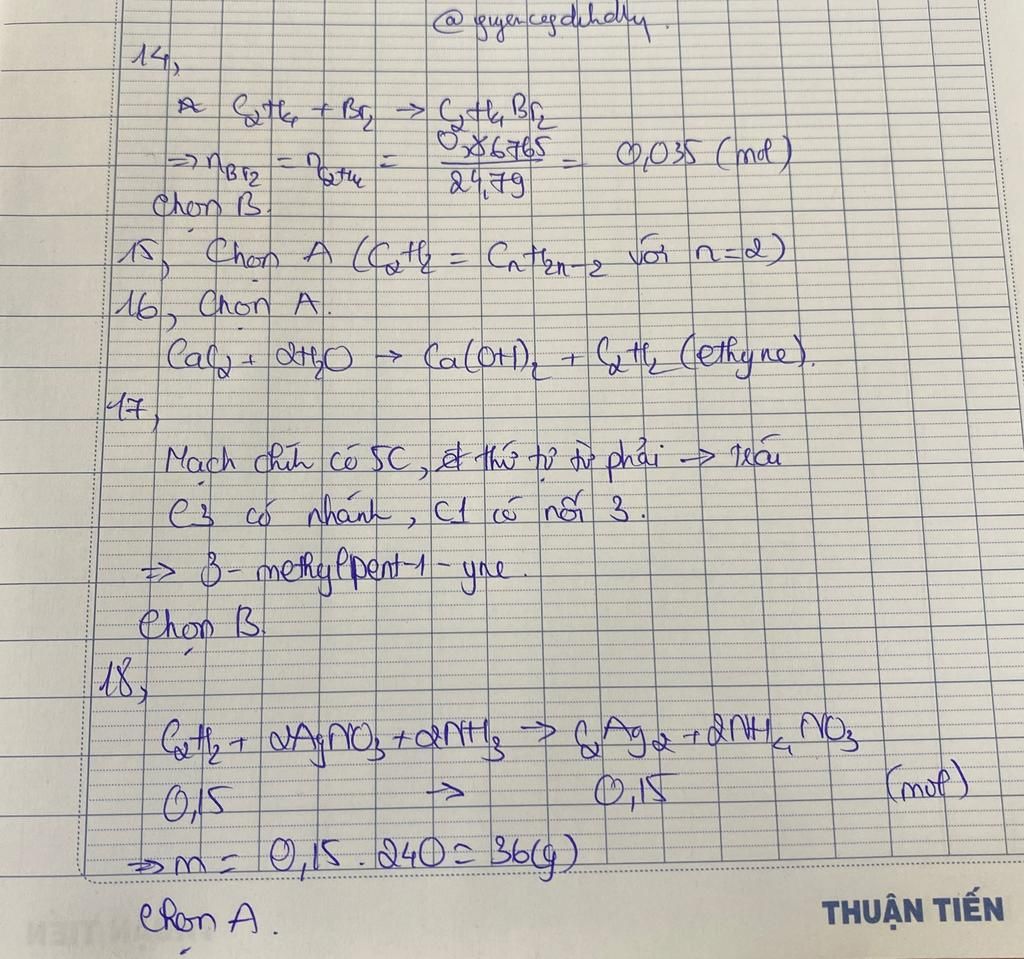 14,
C₂H₄ + Br₂ → C₂H₄Br₂
⇒ nBr₂ = nC₂H₄ = 0,86765/24,79 = 0,035 (mol)
Chọn B.
15, Chọn A (C₂H₂ = CnH2n-2 với n=2)
16, Chọn A.
CaC₂ + 2H₂O → Ca(OH)₂ + C₂H₂ (ethyne).
17,
Mạch chính có 5C, thứ tự từ phải → trái
C3 có nhánh, C1 có nối 3.
⇒ 3-methylpent-1-yne.
Chọn B.
18,
C₂H₂ + 2AgNO₃ + 2NH₃ → C₂Ag₂ + 2NH₄NO₃
0,15 → 0,15 (mol)
⇒ m = 0,15 . 240 = 36(g)
Chọn A.
THUẬN TIẾN